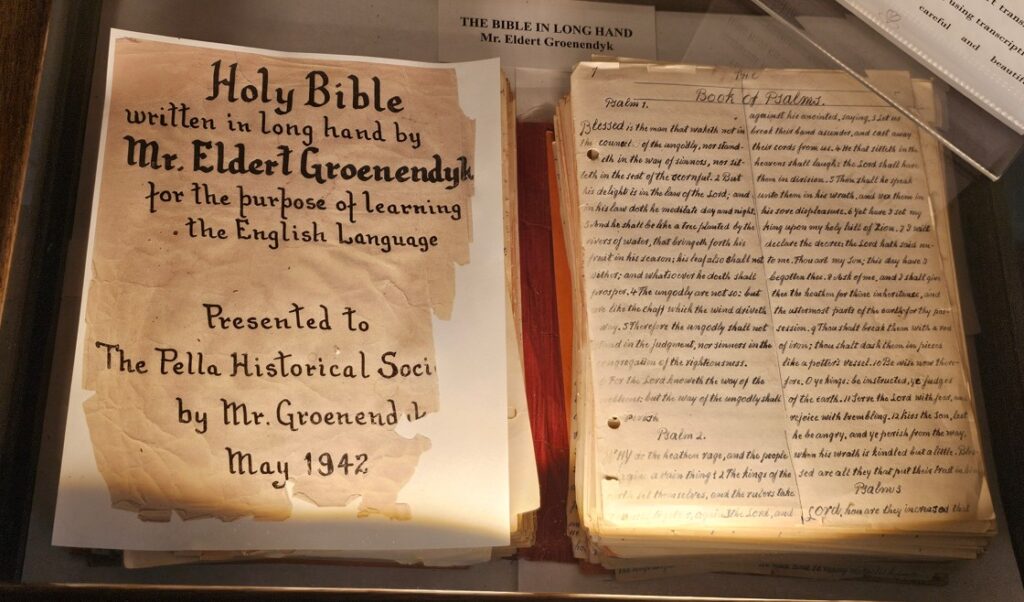 THE BIBLE IN LONG HAND
Mr. Eldert Groenendyk
using transcripti
careful and
beautifu
Holy Bible
written in long hand by
Mr. Eldert Groenendyk
for the purpose of learning
the English Language
Presented to
The Pella Historical Soci
by Mr. Groenend k
May 1942
The
Book of Psalms.
Psalm 1.
Blessed is the man that walketh not in
the counsel of the ungodly, nor stand-
eth in the way of sinners, nor sit-
teth in the seat of the scornful. 2 But
his delight is in the law of the Lord; and
in his law doth he meditate day and night.
3 And he shall be like a tree planted by the
rivers of water, that bringeth forth his
fruit in his season; his leaf also shall not
wither; and whatsoever he doeth shall
prosper. 4 The ungodly are not so: but
are like the chaff which the wind driveth
away. 5 Therefore the ungodly shall not
stand in the judgment, nor sinners in the
congregation of the righteousness.
6 For the Lord knoweth the way of the
but the way of the ungodly shall
perish
Psalm 2.
WHY do the heathen rage, and the people
imagine a vain thing? 2 The kings of the
set themselves, and the rulers take
against the Lord, and
against his anointed, saying, 3 Let us
break their band asunder, and cast away
their cords from us. 4 He that sitteth in the
heavens shall laugh: the Lord shall have
them in division. 5 Then shall he speak
unto them in his wrath, and vex them in
his sore displeasure. 6 Yet have I set my
king upon my holy hill of Zion. 7 I will
declare the decree: the Lord hath said un-
to me. Thou art my Son; this day have I
begotten thee. 8 Ask of me, and I shall give
thee the heathen for thine inheritance, and
the uttermost parts of the earth for thy pos-
session. 9 Thou shalt break them with a rod
of iron; thou shalt dash them in pieces
like a potter's vessel. 10 Be wise now there-
fore. O ye kings: be instructed, ye judges
of the earth. 11 Serve the Lord with fear, and
rejoice with trembling. 12 Kiss the Son, lest
he be angry, and ye perish from the way.
when his wrath is kindled but a little. Bles-
sed are all they that put their trust in
Psalm 3
Lord, how are they increased that